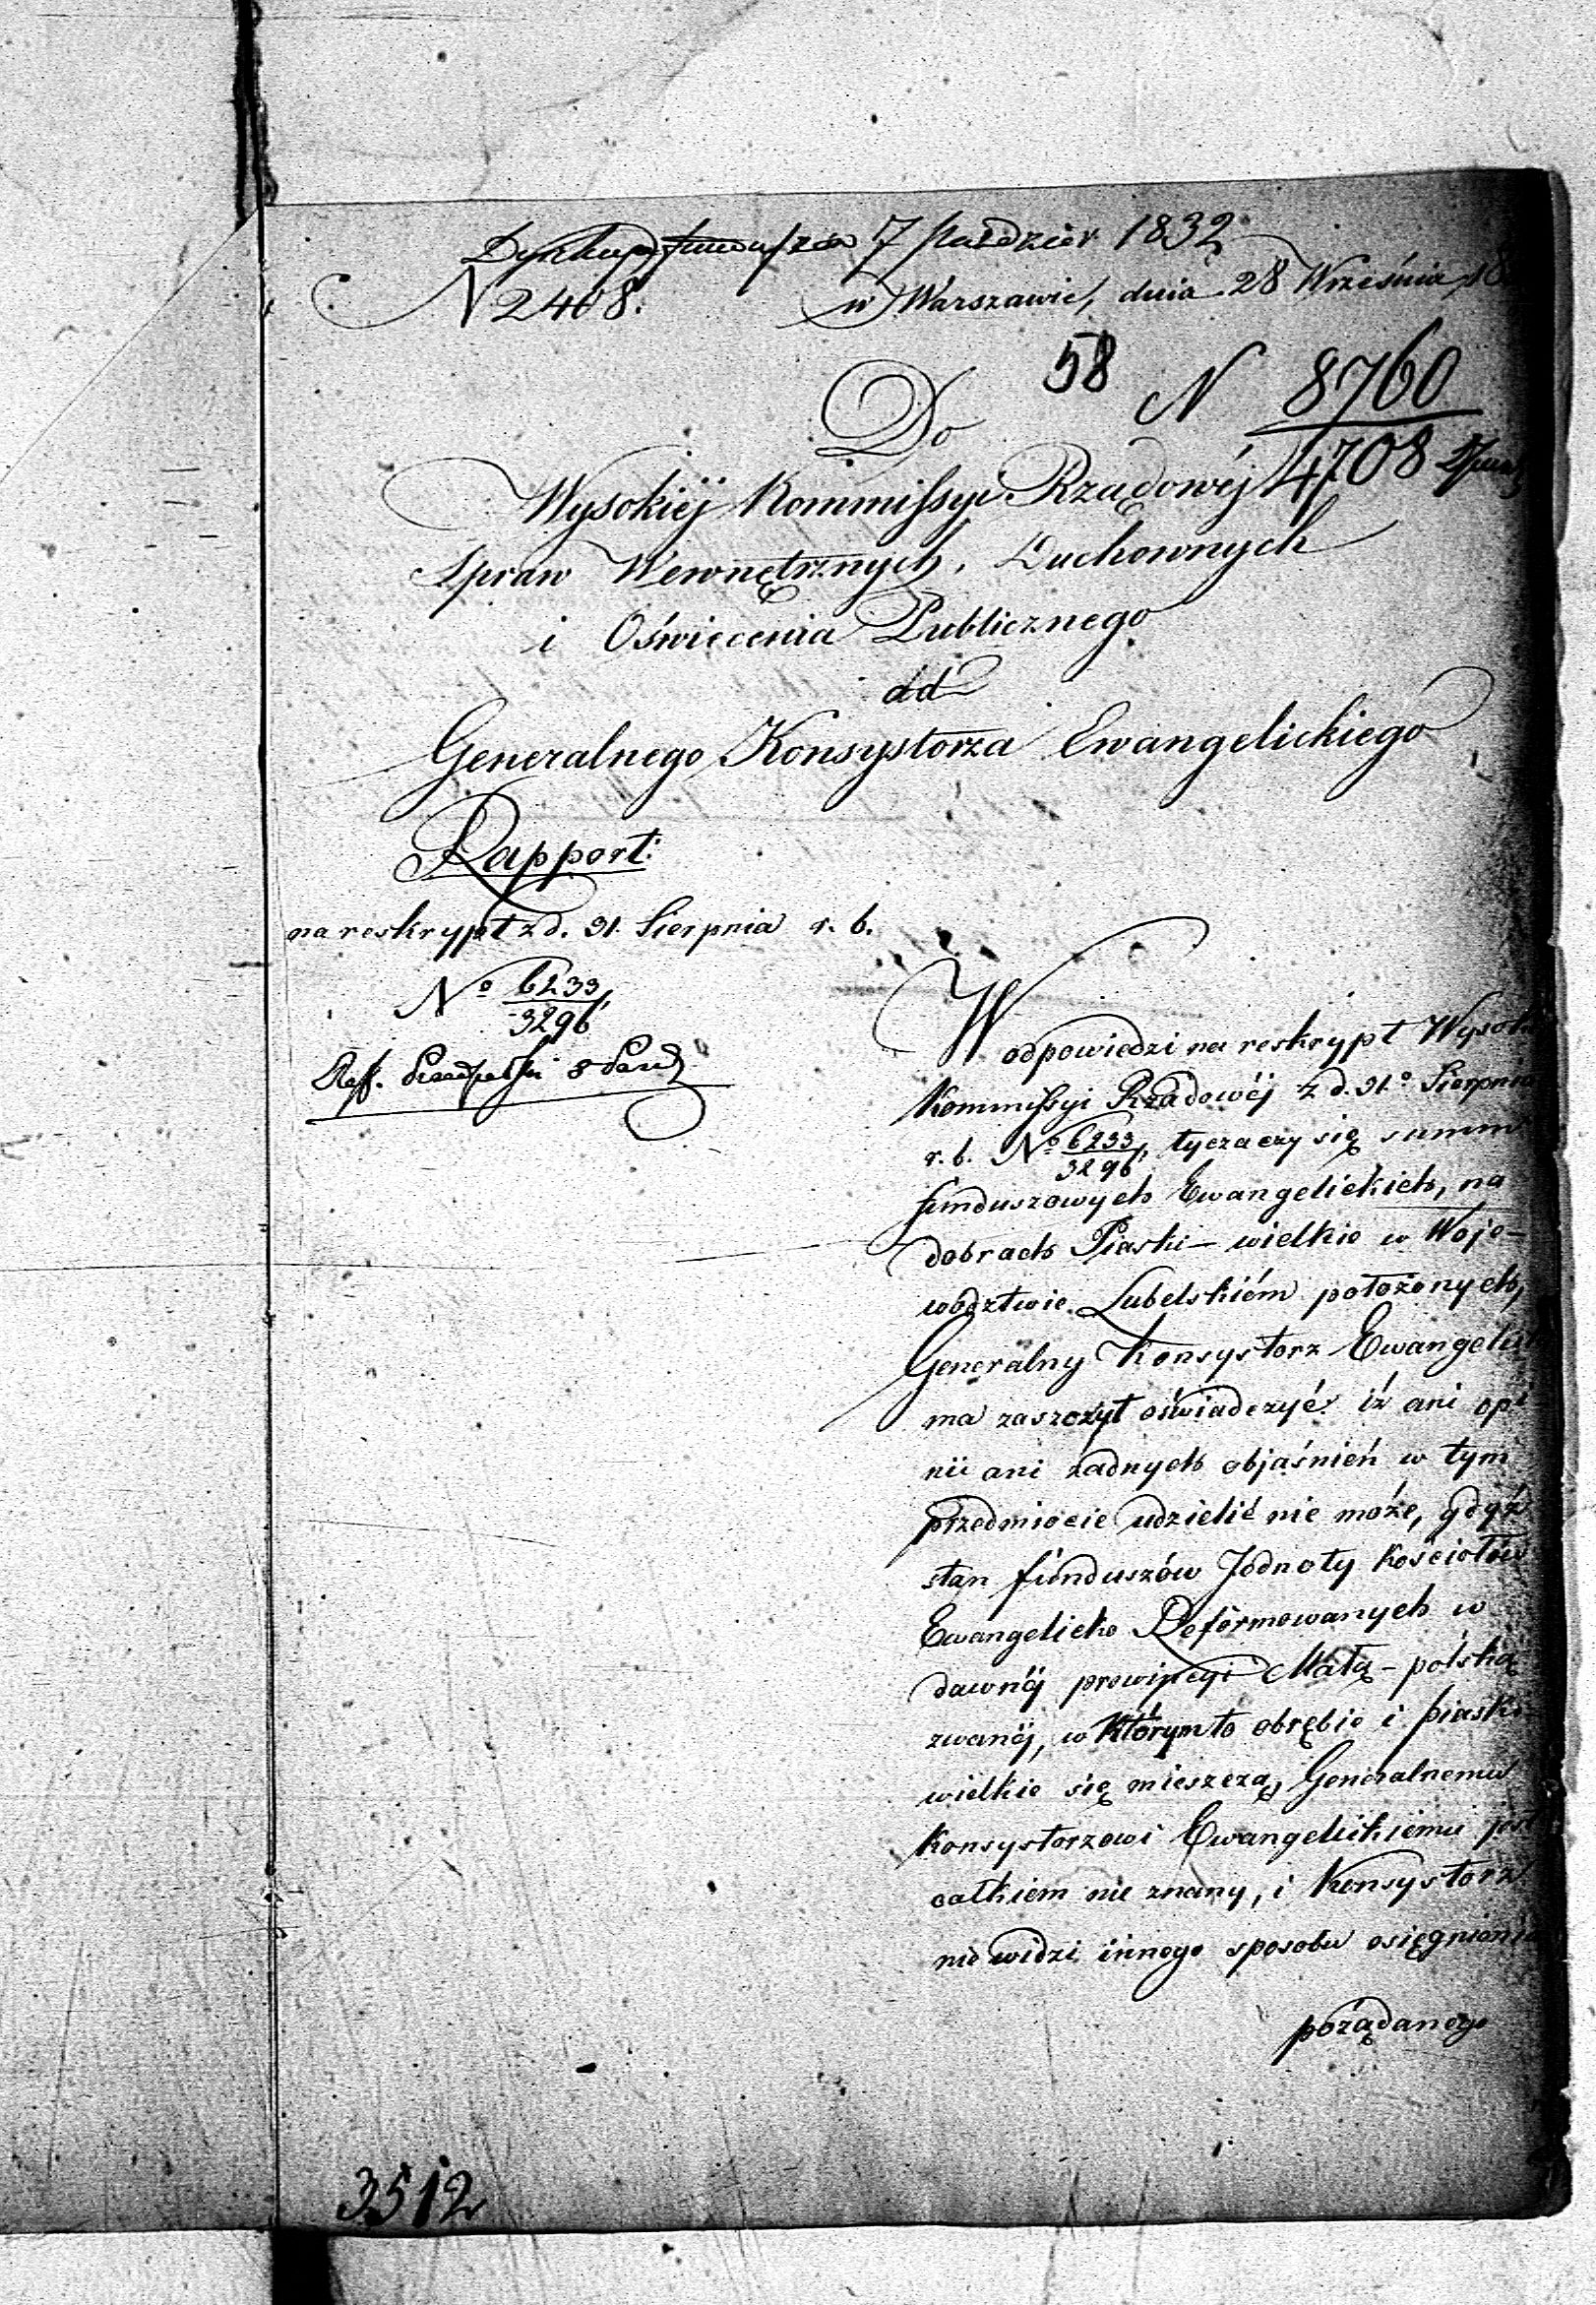 7 Paździer 1832
N 2408. w Warszawie, dnia 28 Września 18
58 N 8760
4708
Do
Wysokiéj Kommissyi Rządowéj
Spraw Wewnętrznych, Duchownych
i Oświecenia Publicznego
od
Generalnego Konsystorza Ewangelickiego
Rapport:
na reskrypt z d. 31. Sierpnia r. b.
Nº 6233
3296
W odpowiedzi na reskrypt
Kommissyi Rządowéj z d. 31º Sierpnia
r. b. Nº 6233/3296, tyczaczy się summ
funduszowych Ewangelickich, na
dobrach Piaski-wielkie w Woje-
wództwie Lubelskiém położonych,
Generalny Konsystorz
ma zaszczyt oświadczyć iż ani opi
nii ani żadnych objaśnień w tym
przedmiocie udzielić nie może, gdyż
stan funduszów Jednoty Kościołów
Ewangelicko Reformowanych w
dawnéj prowincyi Małą-polską
zwanéj, w którym to obrębie i piaski
wielkie się mieszczą, Generalnemu
Konsystorzowi Ewangelickiemu jest
całkiem nie znany, i Konsystorz
nie widzi innego sposobu osięgnienia
pożądanego
3512